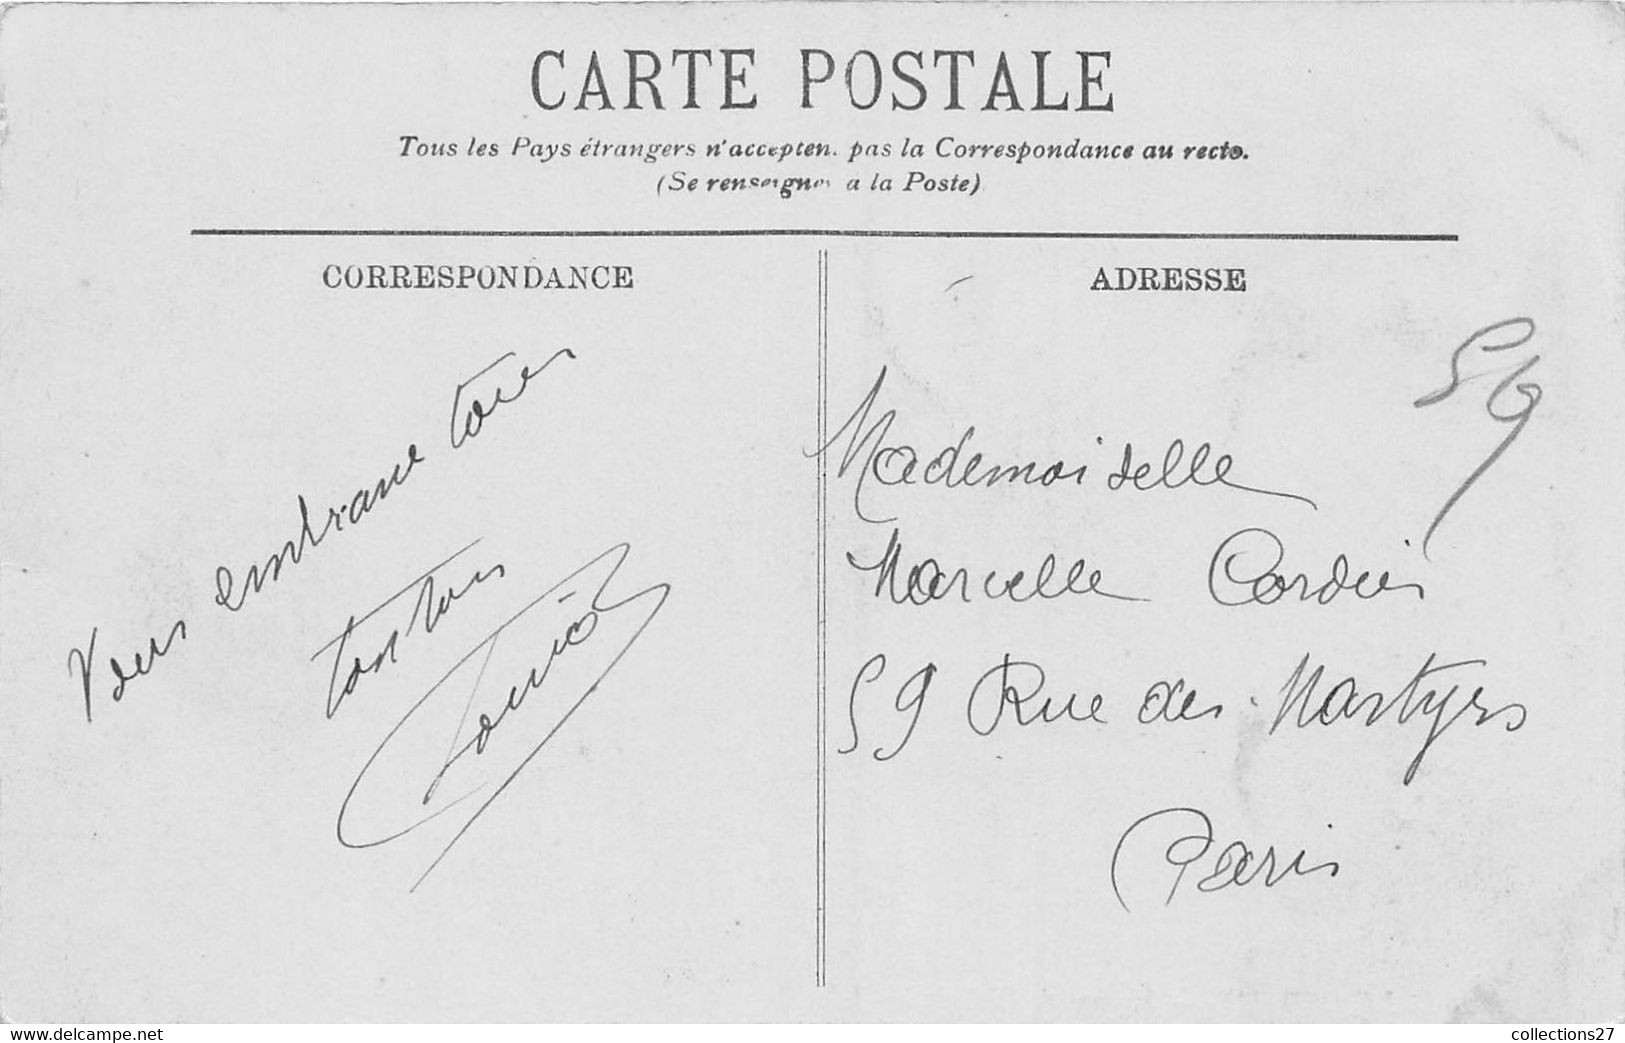 CARTE POSTALE
Tous les Pays étrangers n'accepten. pas la Correspondance au recto.
(Se renseigner a la Poste)
CORRESPONDANCE
Vous embrasse tous
tonton
ADRESSE
59
Mademoiselle
Marcelle Cordier
59 Rue des Martyrs
Paris
www.delcampe.net
collections27